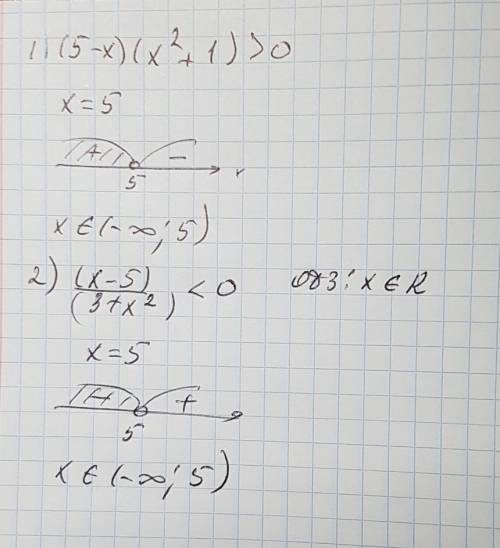 1) (5-x)(x²+1)>0
x=5
+ −
5 x
x∈(-∞; 5)
2) (x-5)/(3+x²) < 0 ОДЗ: x∈R
x=5
− +
5
x∈(-∞; 5)